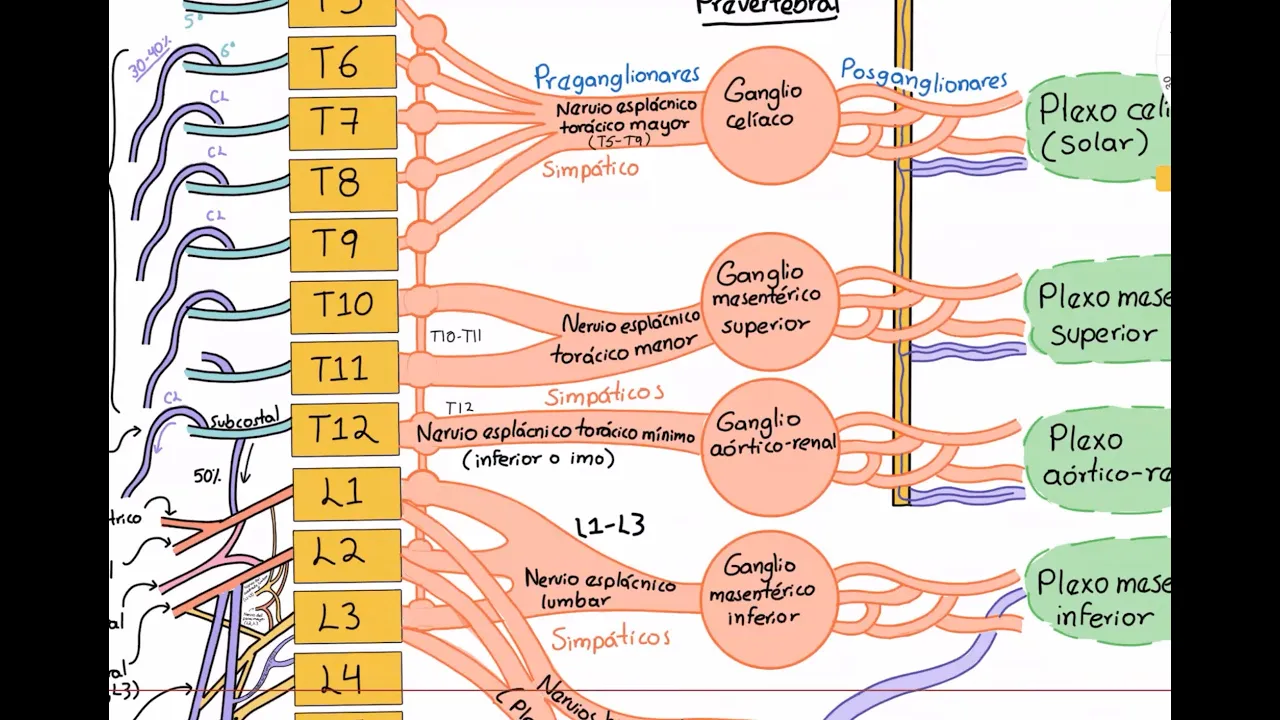 Prevertebral
T5
5°
30-40%
6°
T6
Preganglionares
Posganglionares
Nervio esplácnico
torácico mayor
(T5-T9)
Simpático
Ganglio
celíaco
Plexo celi
(Solar)
CL
T7
CL
T8
CL
T9
T10
T10-T11
Nervio esplácnico
torácico menor
Simpáticos
Ganglio
mesentérico
superior
Plexo mese
Superior
T11
CL
Subcostal
T12
T12
Nervio esplácnico torácico mínimo
(inferior o imo)
Ganglio
aórtico-renal
Plexo
aórtico-re
50%
L1
L1-L3
trico
L2
Nervio esplácnico
lumbar
Simpáticos
Ganglio
mesentérico
inferior
Plexo mese
inferior
l
al
L3
ral
L3)
L4
Nervios
(Ple